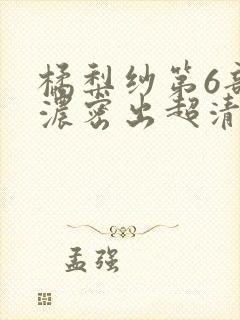 橘梨纱第6部
浓密出超清
孟强